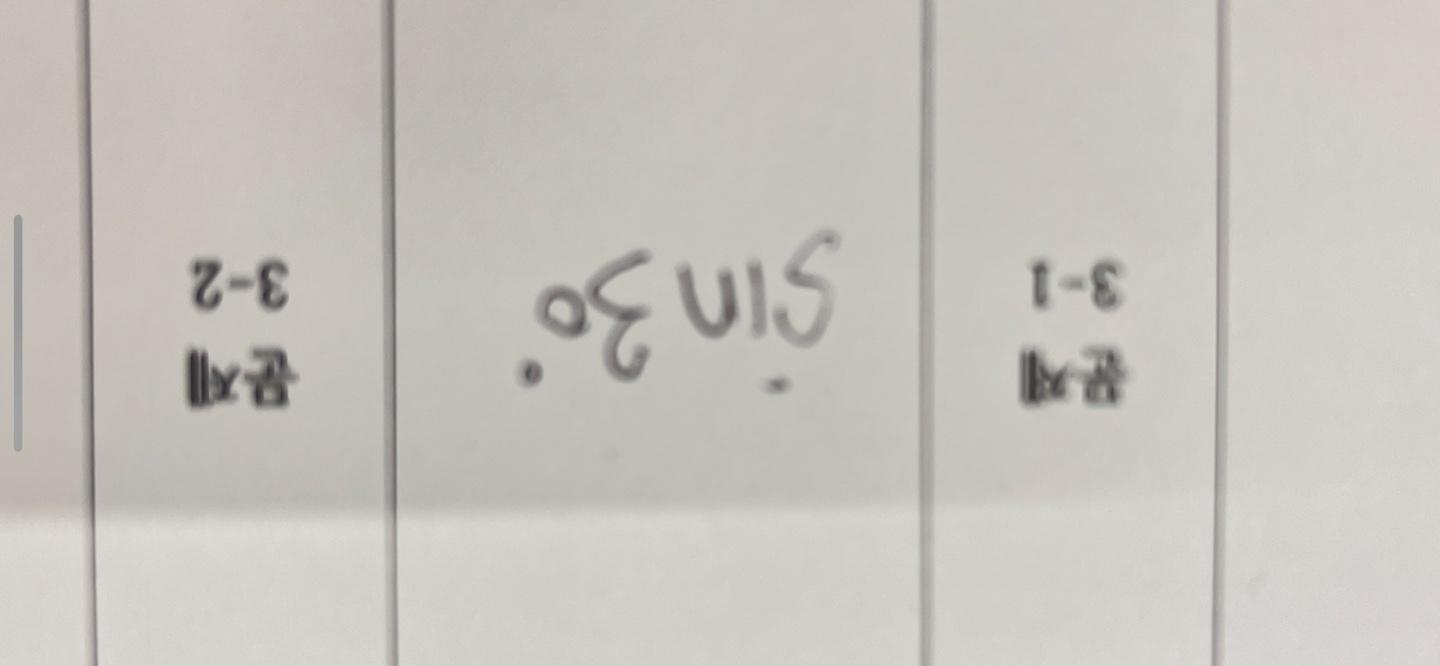 문제
3-1
Sin 30°
문제
3-2